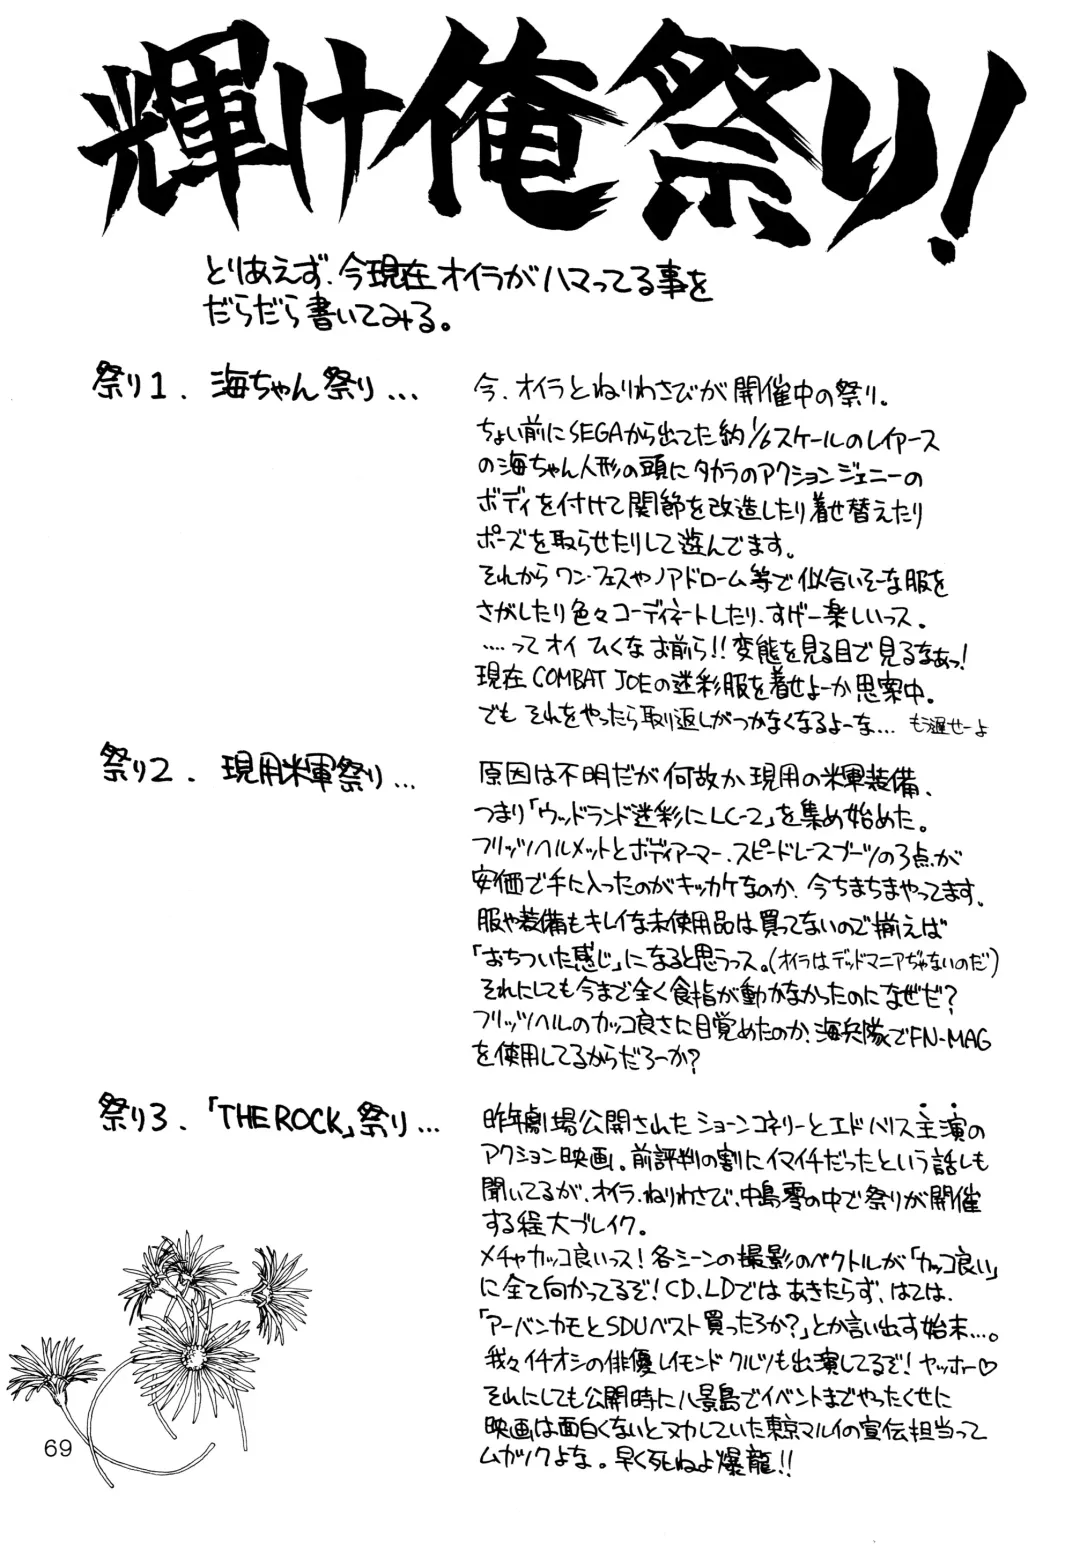 輝け俺祭り!
とりあえず、今現在オイラがハマってる事を
だらだら書いてみる。
祭り1. 海ちゃん祭り...
今、オイラとねりわさびが開催中の祭り。
ちょい前にSEGAから出てた約1/6スケールのレイアース
の海ちゃん人形の頭にタカラのアクションジェニーの
ボディを付けて関節を改造したり着せ替えたり
ポーズを取らせたりして遊んでます。
それからワン・フェスやノアドローム等で似合いそーな服を
さがしたり色々コーディネートしたり、すげー楽しいっス。
....ってオイ ひくなお前ら!!変態を見る目で見るなあっ!
現在COMBAT JOEの迷彩服を着せよーか思案中。
でもそれをやったら取り返しがつかなくなるよーな... もう遅せーよ
祭り2. 現用米軍祭り...
原因は不明だが何故か現用の米軍装備、
つまり「ウッドランド迷彩にLC-2」を集め始めた。
フリッツヘルメットとボディアーマー、スピードレースブーツの3点が
安価で手に入ったのがキッカケなのか、今ちまちまやってます。
服や装備もキレイな未使用品は買ってないので揃えば
「おちついた感じ」になると思うっス。(オイラはデッドマニアぢゃないのだ)
それにしても今まで全く食指が動かなかったのになぜだ?
フリッツヘルのカッコ良さに目覚めたのか、海兵隊でFN-MAG
を使用してるからだろーか?
祭り3. 「THE ROCK」祭り...
昨年劇場公開されたショーンコネリーとエドハリス主演の
アクション映画。前評判の割にイマイチだったという話しも
聞いてるが、オイラ、ねりわさび、中島零の中で祭りが開催
する程大ブレイク。
メチャカッコ良いっス!各シーンの撮影のベクトルが「カッコ良い」
に全て向かってるぞ!CD、LDではあきたらず、はては、
「アーバンカモとSDUベスト買ったろか?」とか言い出す始末...。
我々イチオシの俳優レイモンドクルツも出演してるぞ!ヤッホー♡
それにしても公開時に八景島でイベントまでやったくせに
映画は面白くないとヌカしていた東京マルイの宣伝担当って
ムカツクよな。早く死ねよ爆龍!!
69